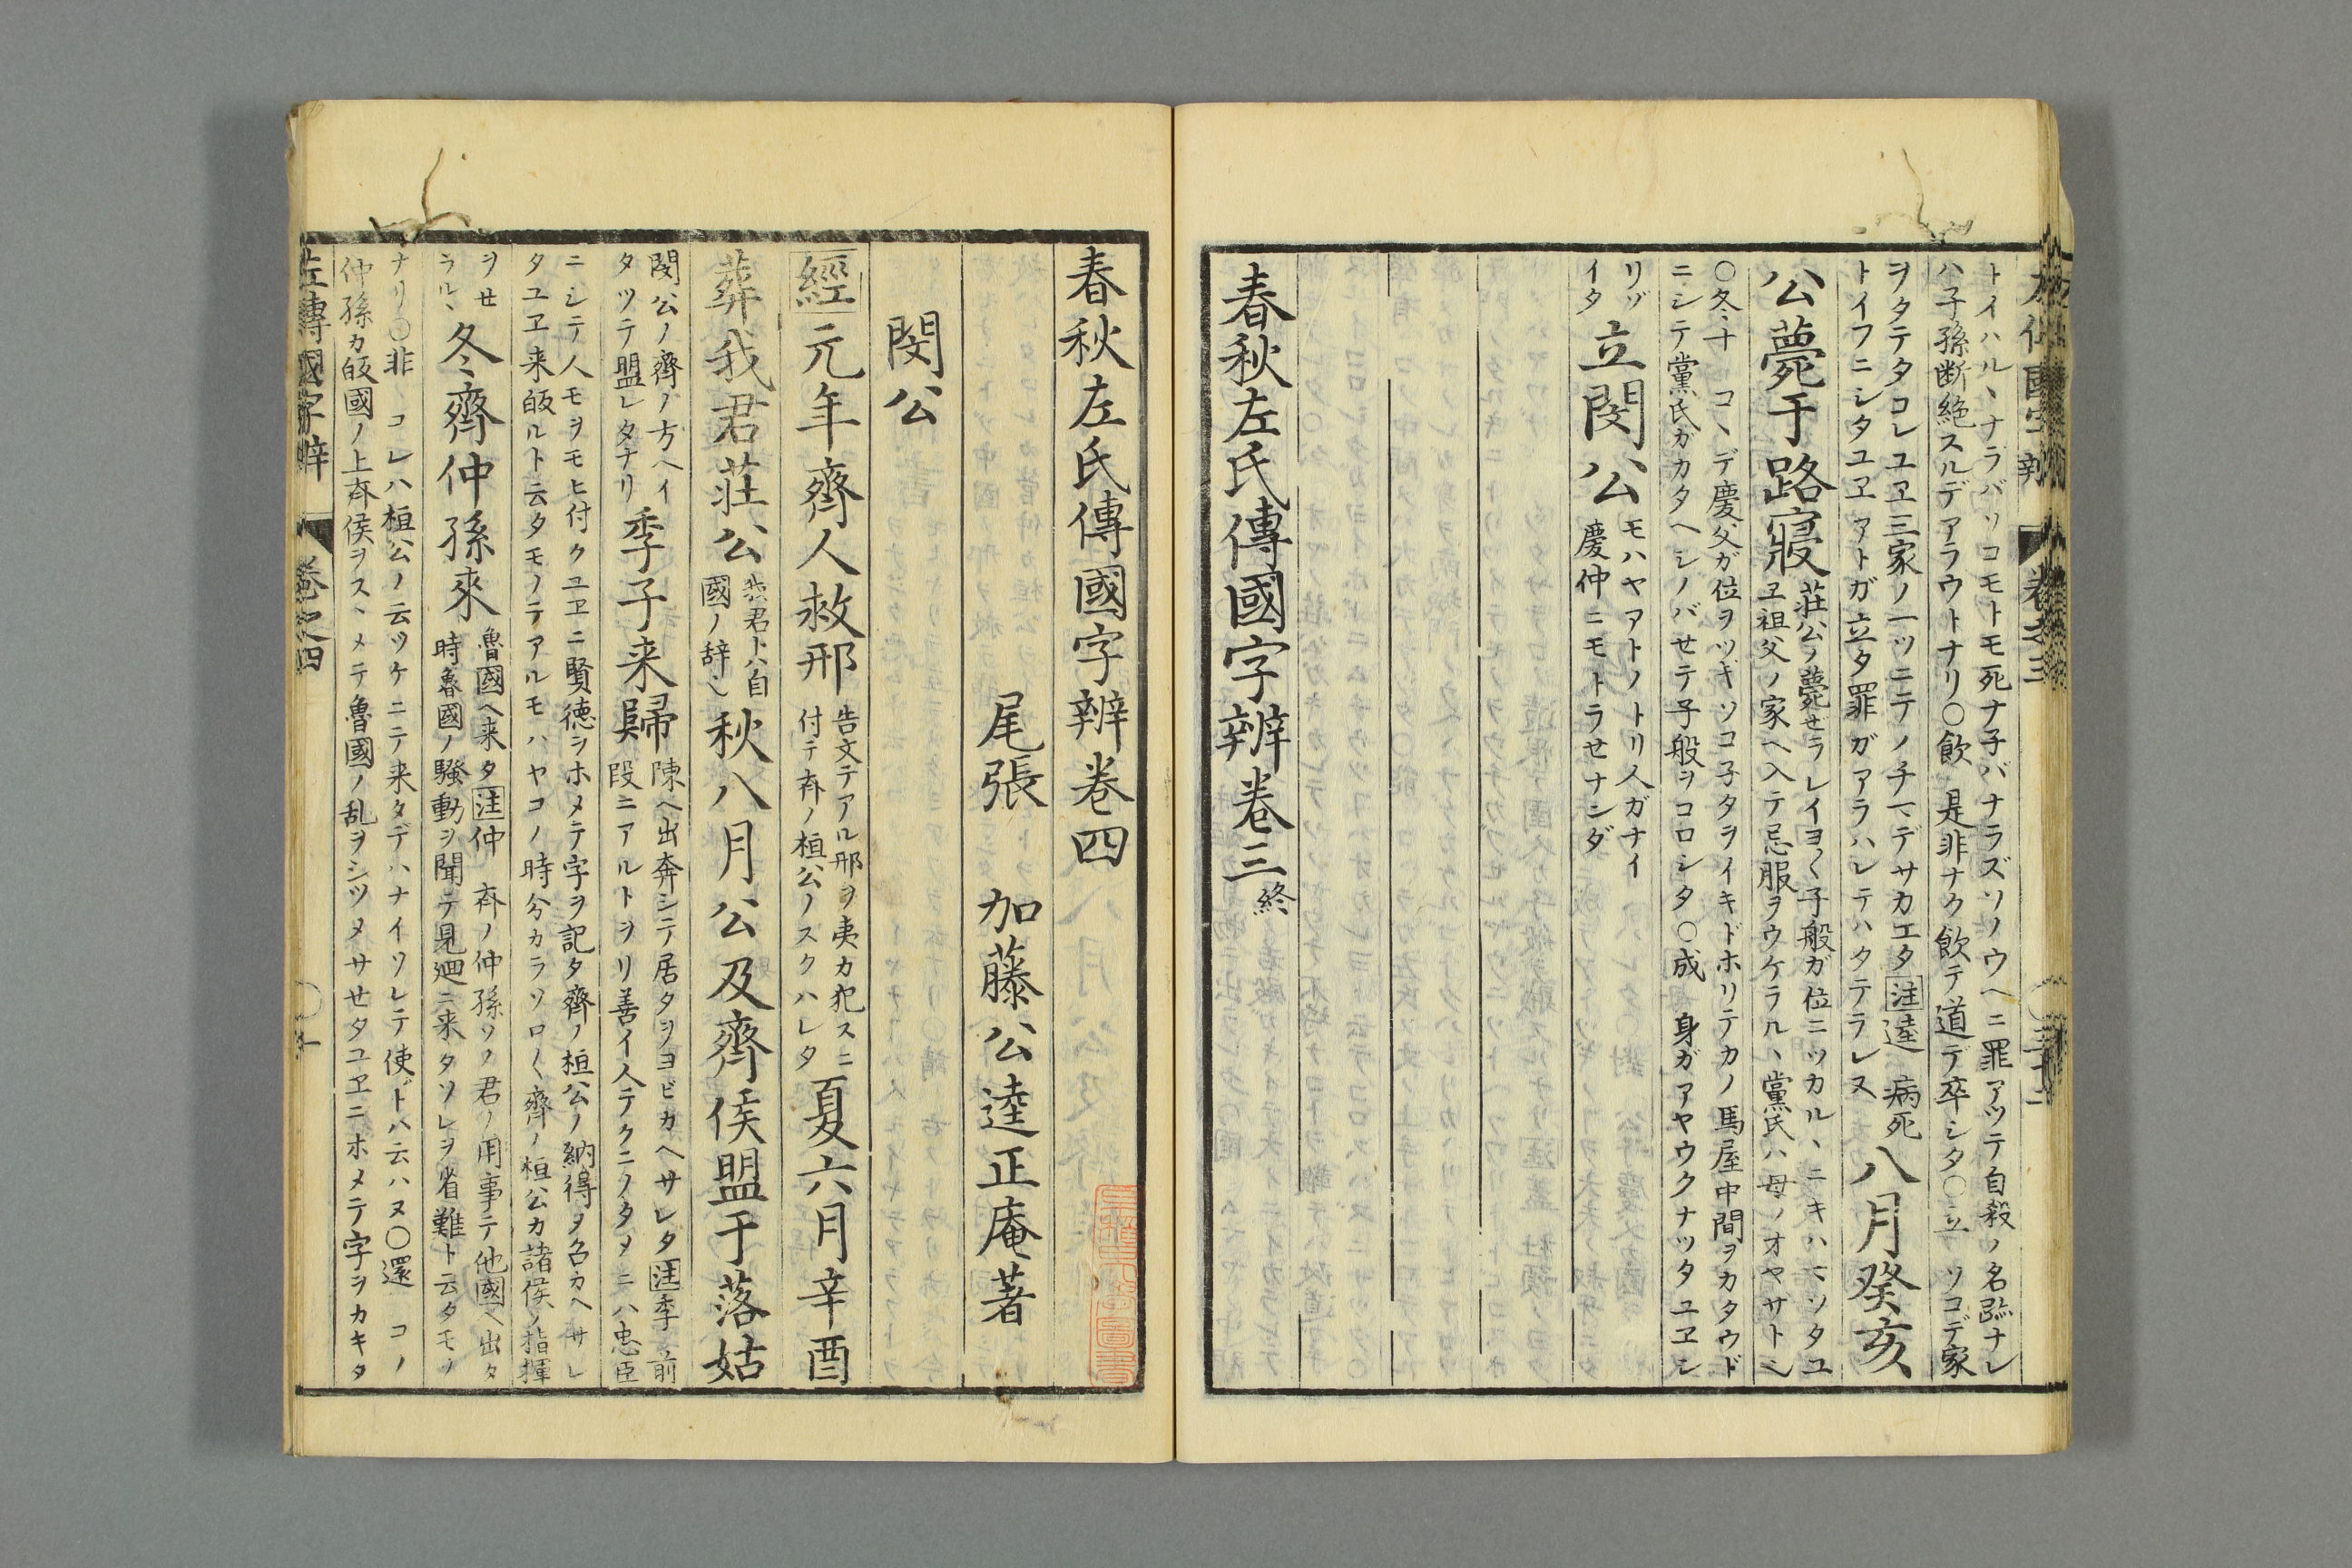 トイハルヽナラバソコモトモ死ナ子バナラズソノウヘニ罪アツテ自殺ノ名跡ナレ
ハ子孫断絶スルデアラウトナリ○飲 是非ナク飲テ道デ卒シタ○立 ソコデ家
ヲタテタコレユヱ三家ノ一ツニテノチマデサカエタ注逵 病死
トイフニシタユヱアトガ立タ罪ガアラハレテハタテラレヌ
八月癸亥
公薨于路寢
荘公ノ薨ゼラレイヨ〱子般ガ位ニツカルヽニキハマソタユ
ヱ祖父ノ家ヘ入テ忌服ヲウケラルヽ黨氏ハ母ノオヤサトシ
○冬十 コヽデ慶父ガ位ヲツギソコ子タヲイキドホリテカノ馬屋中間ヲカタウド
ニシテ黨氏ガカタヘシノバセテ子般ヲコロシタ○成 身ガアヤウクナツタユヱシ
リゾ
イタ
立閔公
モハヤアトノトリ人ガナイ
慶仲ニモトラセナンダ
春秋左氏傳國字辨巻三終
春秋左氏傳國字辨巻四
尾張 加藤公逵正庵著
閔公
經元年齊人救邢
告文テアル邢ヲ夷カ犯スニ
付テ斉ノ桓公ノスクハレタ
夏六月辛酉
葬我君荘公
我君トハ自
國ノ辞シ
秋八月公及齊侯盟于落姑
閔公ノ齊ノ方ヘイ
タツテ盟レタナリ
季子来歸
陳ヘ出奔シテ居タヲヨビカヘサレタ注季 前
段ニアルトヲリ善イ人テクニノタメニハ忠臣
ニシテ人モヲモヒ付クユヱニ賢徳ヲホメテ字ヲ記タ齊ノ桓公ノ納得ヲ名カヘサレ
タユヱ来皈ルト云タモノテアルモハヤコノ時分カラソロ〱齊ノ桓公カ諸侯ノ指揮
ヲセ
ラルヽ
冬齊仲孫來
魯國ヘ来タ注仲 斉ノ仲孫ソノ君ノ用事テ他國ヘ出タ
時魯國ノ騒動ヲ聞テ見廻ニ来タソレヲ省難ト云タモノ
ナリ○非 コレハ桓公ノ云ツケニテ来タデハナイソレテ使トハ云ハヌ○還 コノ
仲孫カ皈國ノ上斉侯ヲスヽメテ魯國ノ乱ヲシツメサセタユヱニホメテ字ヲカキタ
左傳國字辨 巻之四